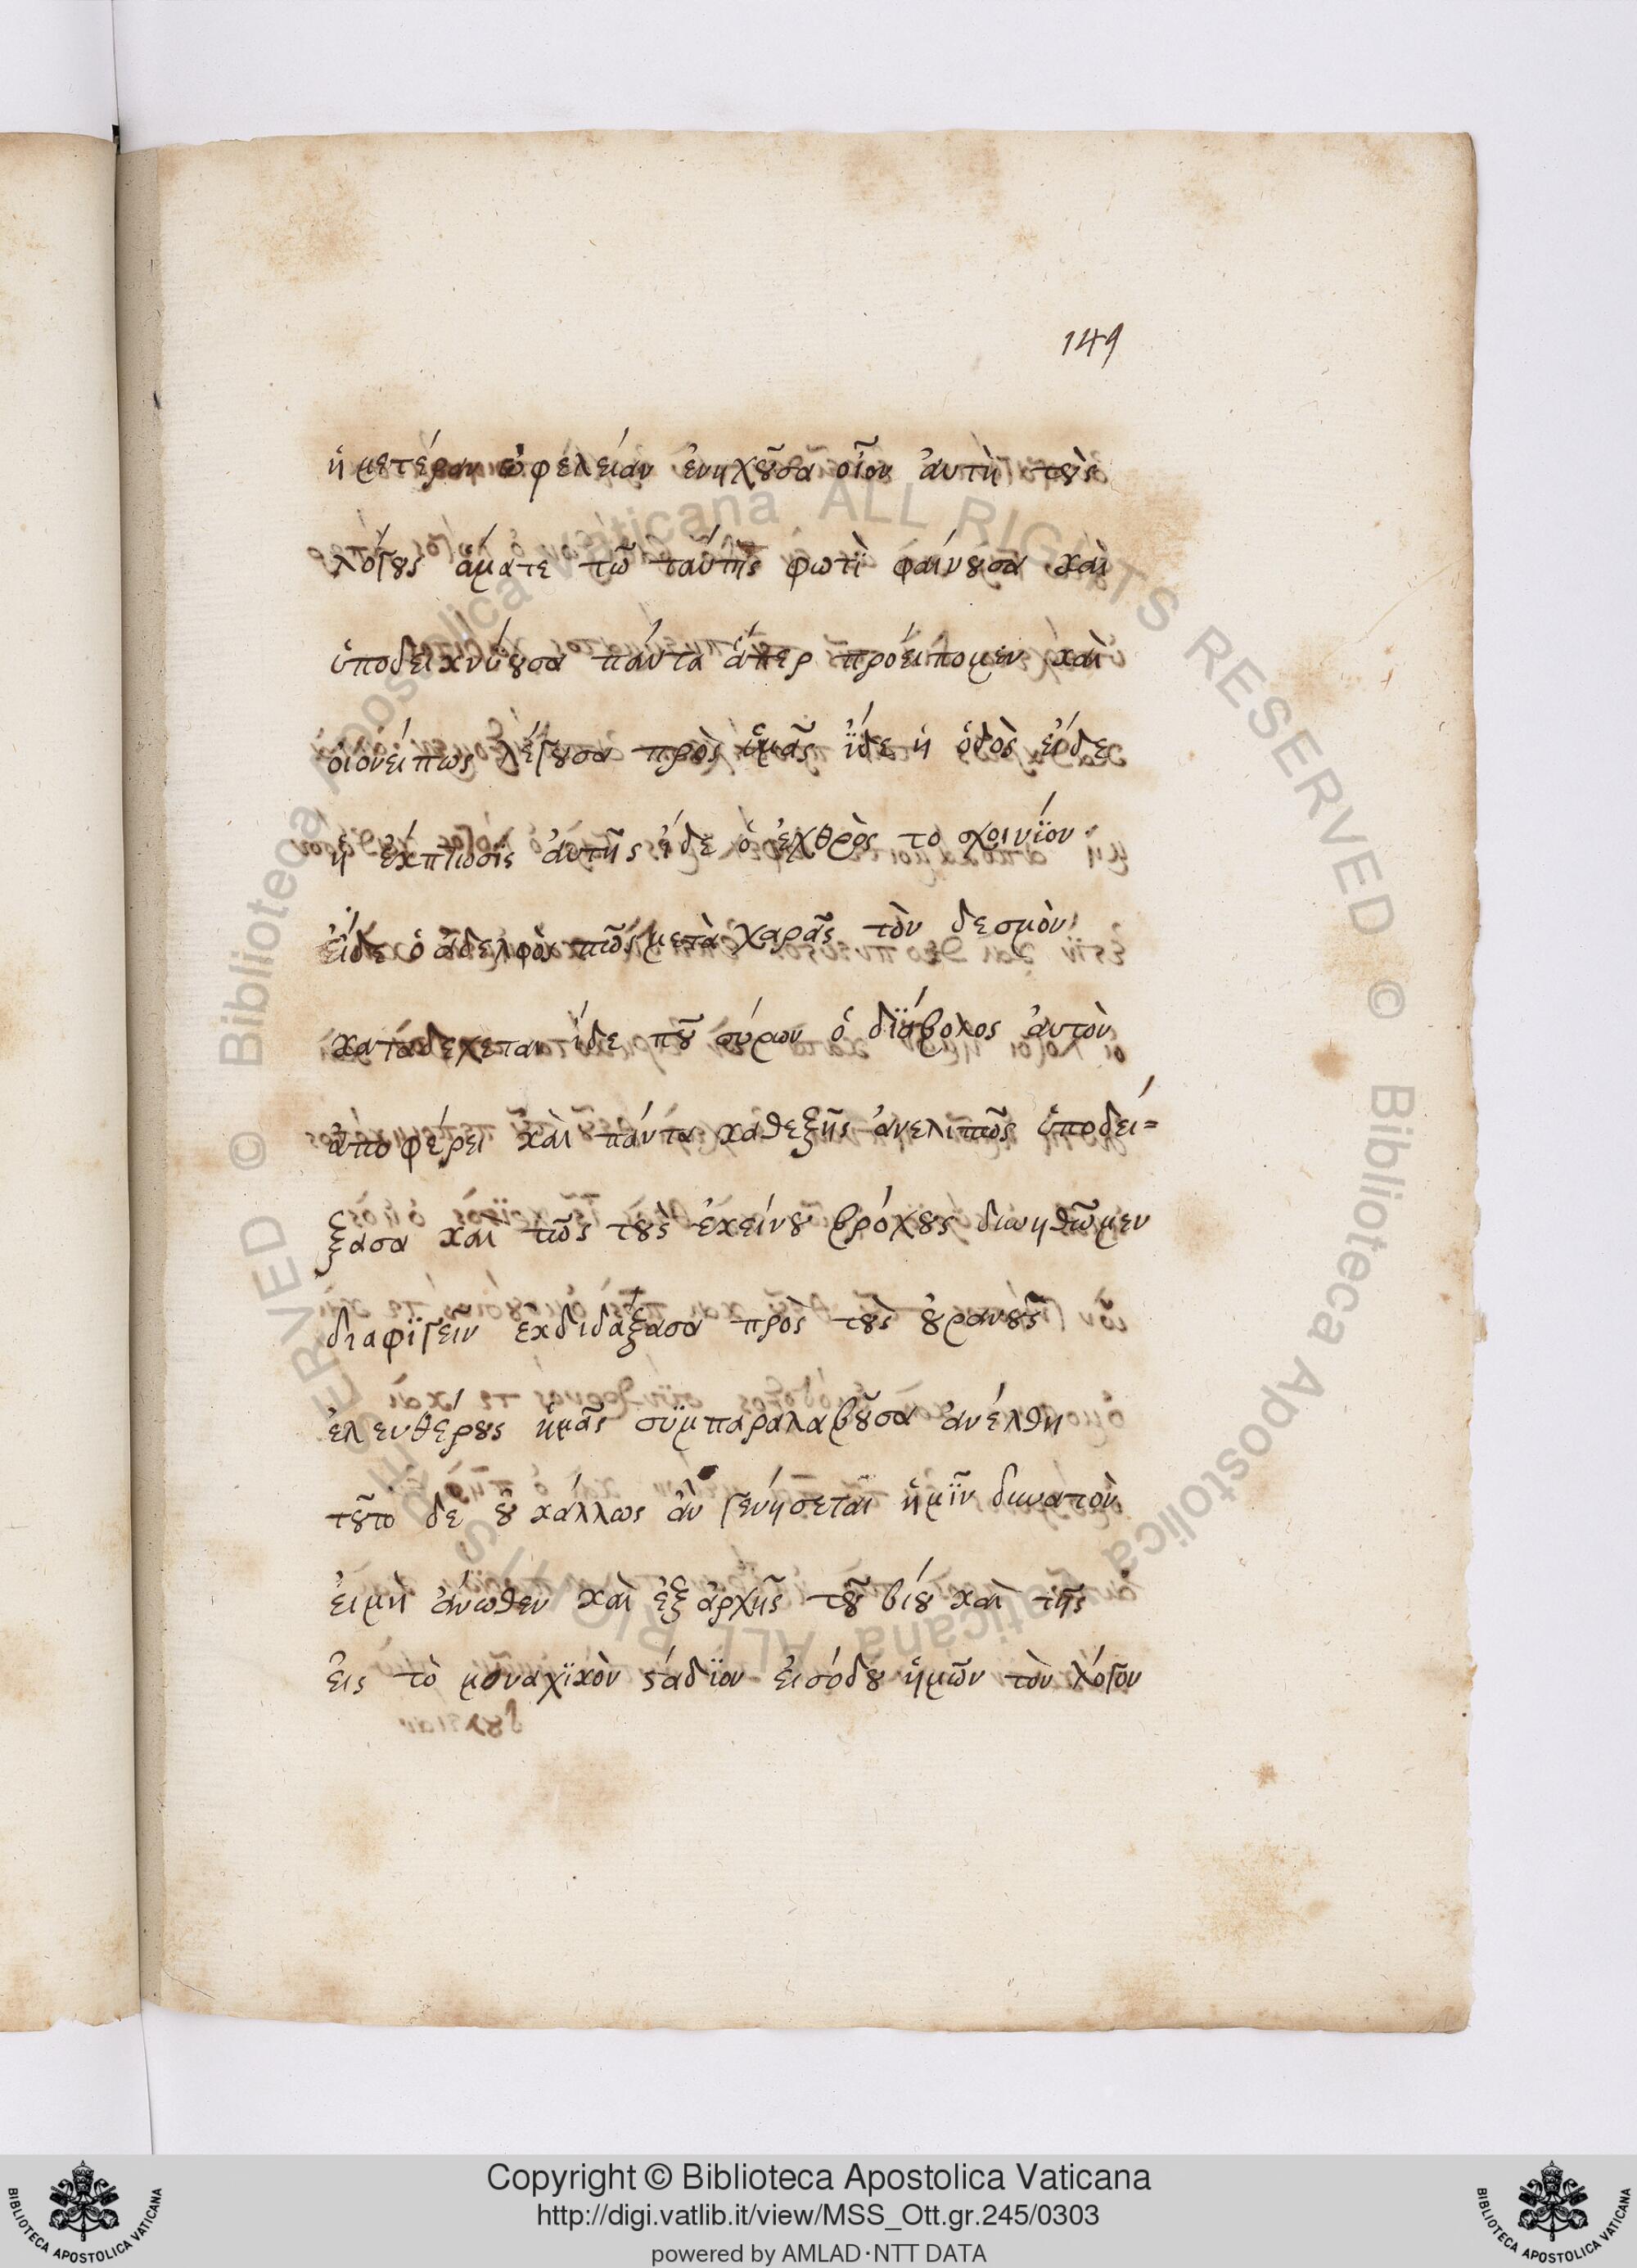 149
ἡμετέραν ὠφέλειαν ἐνηχοῦσα οἷον ἀυτὴ τοὺς
λόγους ἅματε τῶ ταύτης φωτὶ φαίνουσα καὶ
ὑποδεικνύουσα πάντα ἅπερ προείπομεν καὶ
οἱονείπως λέγουσα πρὸς ἡμᾶς ἴδε ἡ ὁδὸς εἴδε
ἡ ἔκπτωσις ἀυτῆς ἴδε ὁ ἐχθρὸς το σχοινίον
εἴδε ὁ ἀδελφὸς πῶς μετὰ χαρᾶς τὸν δεσμὸν
καταδέχεται ἴδε ποῦ σύρων ὁ διάβολος ἀυτὸν
ἀποφέρει καὶ πάντα καθεξῆς ἀνελιπῶς ὑποδεί=
ξασα καὶ πῶς τοὺς ἐκείνου βρόχους δυνηθῶμεν
διαφϊγεῖν ἐκδιδάξασα πρὸς τοὺς οὐρανοὺς
ἐλευθέρους ἡμᾶς συμπαραλαβοῦσα ἀνέλθη
τοῦτο δε οὐκάλλως ἀν γενήσεται ἡμῖν δυνατὸν
ἐιμὴ ἄνωθεν καὶ ἐξ ἀρχῆς τοῦ βίου καὶ τῆς
ἐις τὸ μοναχϊκὸν στάδϊον ἐισόδου ἡμῶν τὸν λόγον
Copyright © Biblioteca Apostolica Vaticana
http://digi.vatlib.it/view/MSS_Ott.gr.245/0303
powered by AMLAD·NTT DATA
BIBLIOTECA APOSTOLICA VATICANA
BIBLIOTECA APOSTOLICA VATICANA
© Biblioteca Apostolica Vaticana ALL RIGHTS RESERVED © Biblioteca Apostolica Vaticana ALL RIGHTS RESERVED